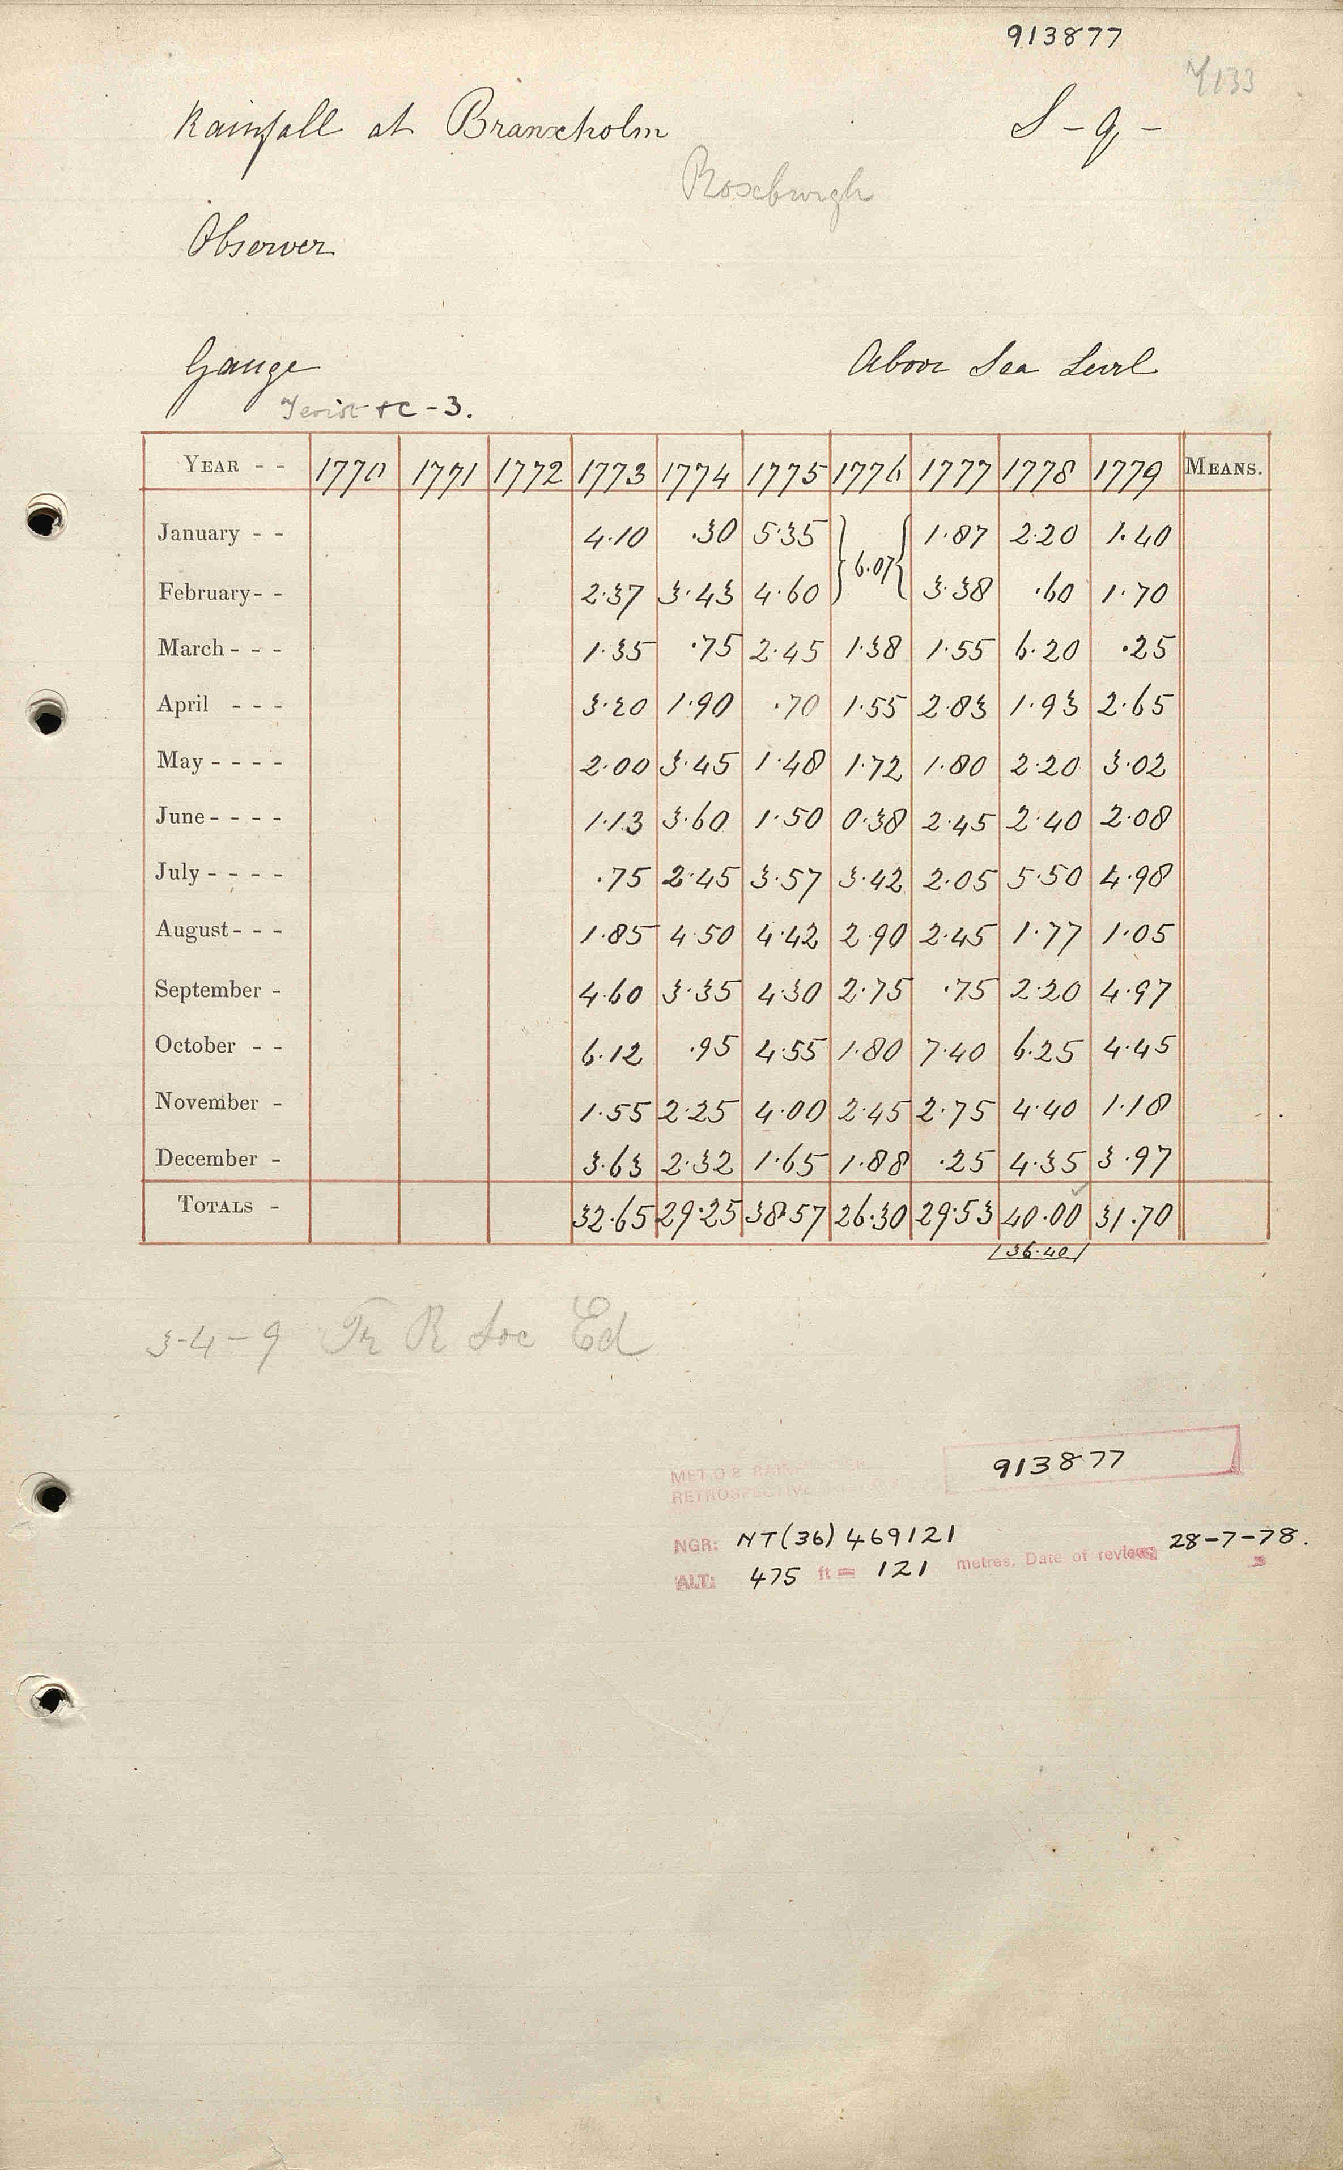 913877
7133
Rainfall at Branxholm S - 9 -
Roxburgh
Observer
Gauge Above Sea Level
+ C - 3.
YEAR - - 1770 1771 1772 1773 1774 1775 1776 1777 1778 1779 MEANS.
January - - 4.10 .30 5.35 } 6.07 { 1.87 2.20 1.40
February - - 2.37 3.43 4.60 3.38 .60 1.70
March - - - 1.35 .75 2.45 1.38 1.55 6.20 .25
April - - - 3.20 1.90 .70 1.55 2.83 1.93 2.65
May - - - - 2.00 3.45 1.48 1.72 1.80 2.20 3.02
June - - - - 1.13 3.60 1.50 0.38 2.45 2.40 2.08
July - - - - .75 2.45 3.57 3.42 2.05 5.50 4.98
August - - - 1.85 4.50 4.42 2.90 2.45 1.77 1.05
September - 4.60 3.35 4.30 2.75 .75 2.20 4.97
October - - 6.12 .95 4.55 1.80 7.40 6.25 4.45
November - 1.55 2.25 4.00 2.45 2.75 4.40 1.18
December - 3.63 2.32 1.65 1.88 .25 4.35 3.97
TOTALS - 32.65 29.25 38.57 26.30 29.53 40.00 31.70
36.40
3-4-9 Tr R Soc Ed
MET.O.8
913877
RETROSPECTIVE
NGR: NT(36)469121 28-7-78.
ALT: 475 ft = 121 metres. Date of review